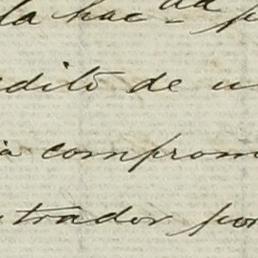 la hac-
dito de u
a comprom
trador por